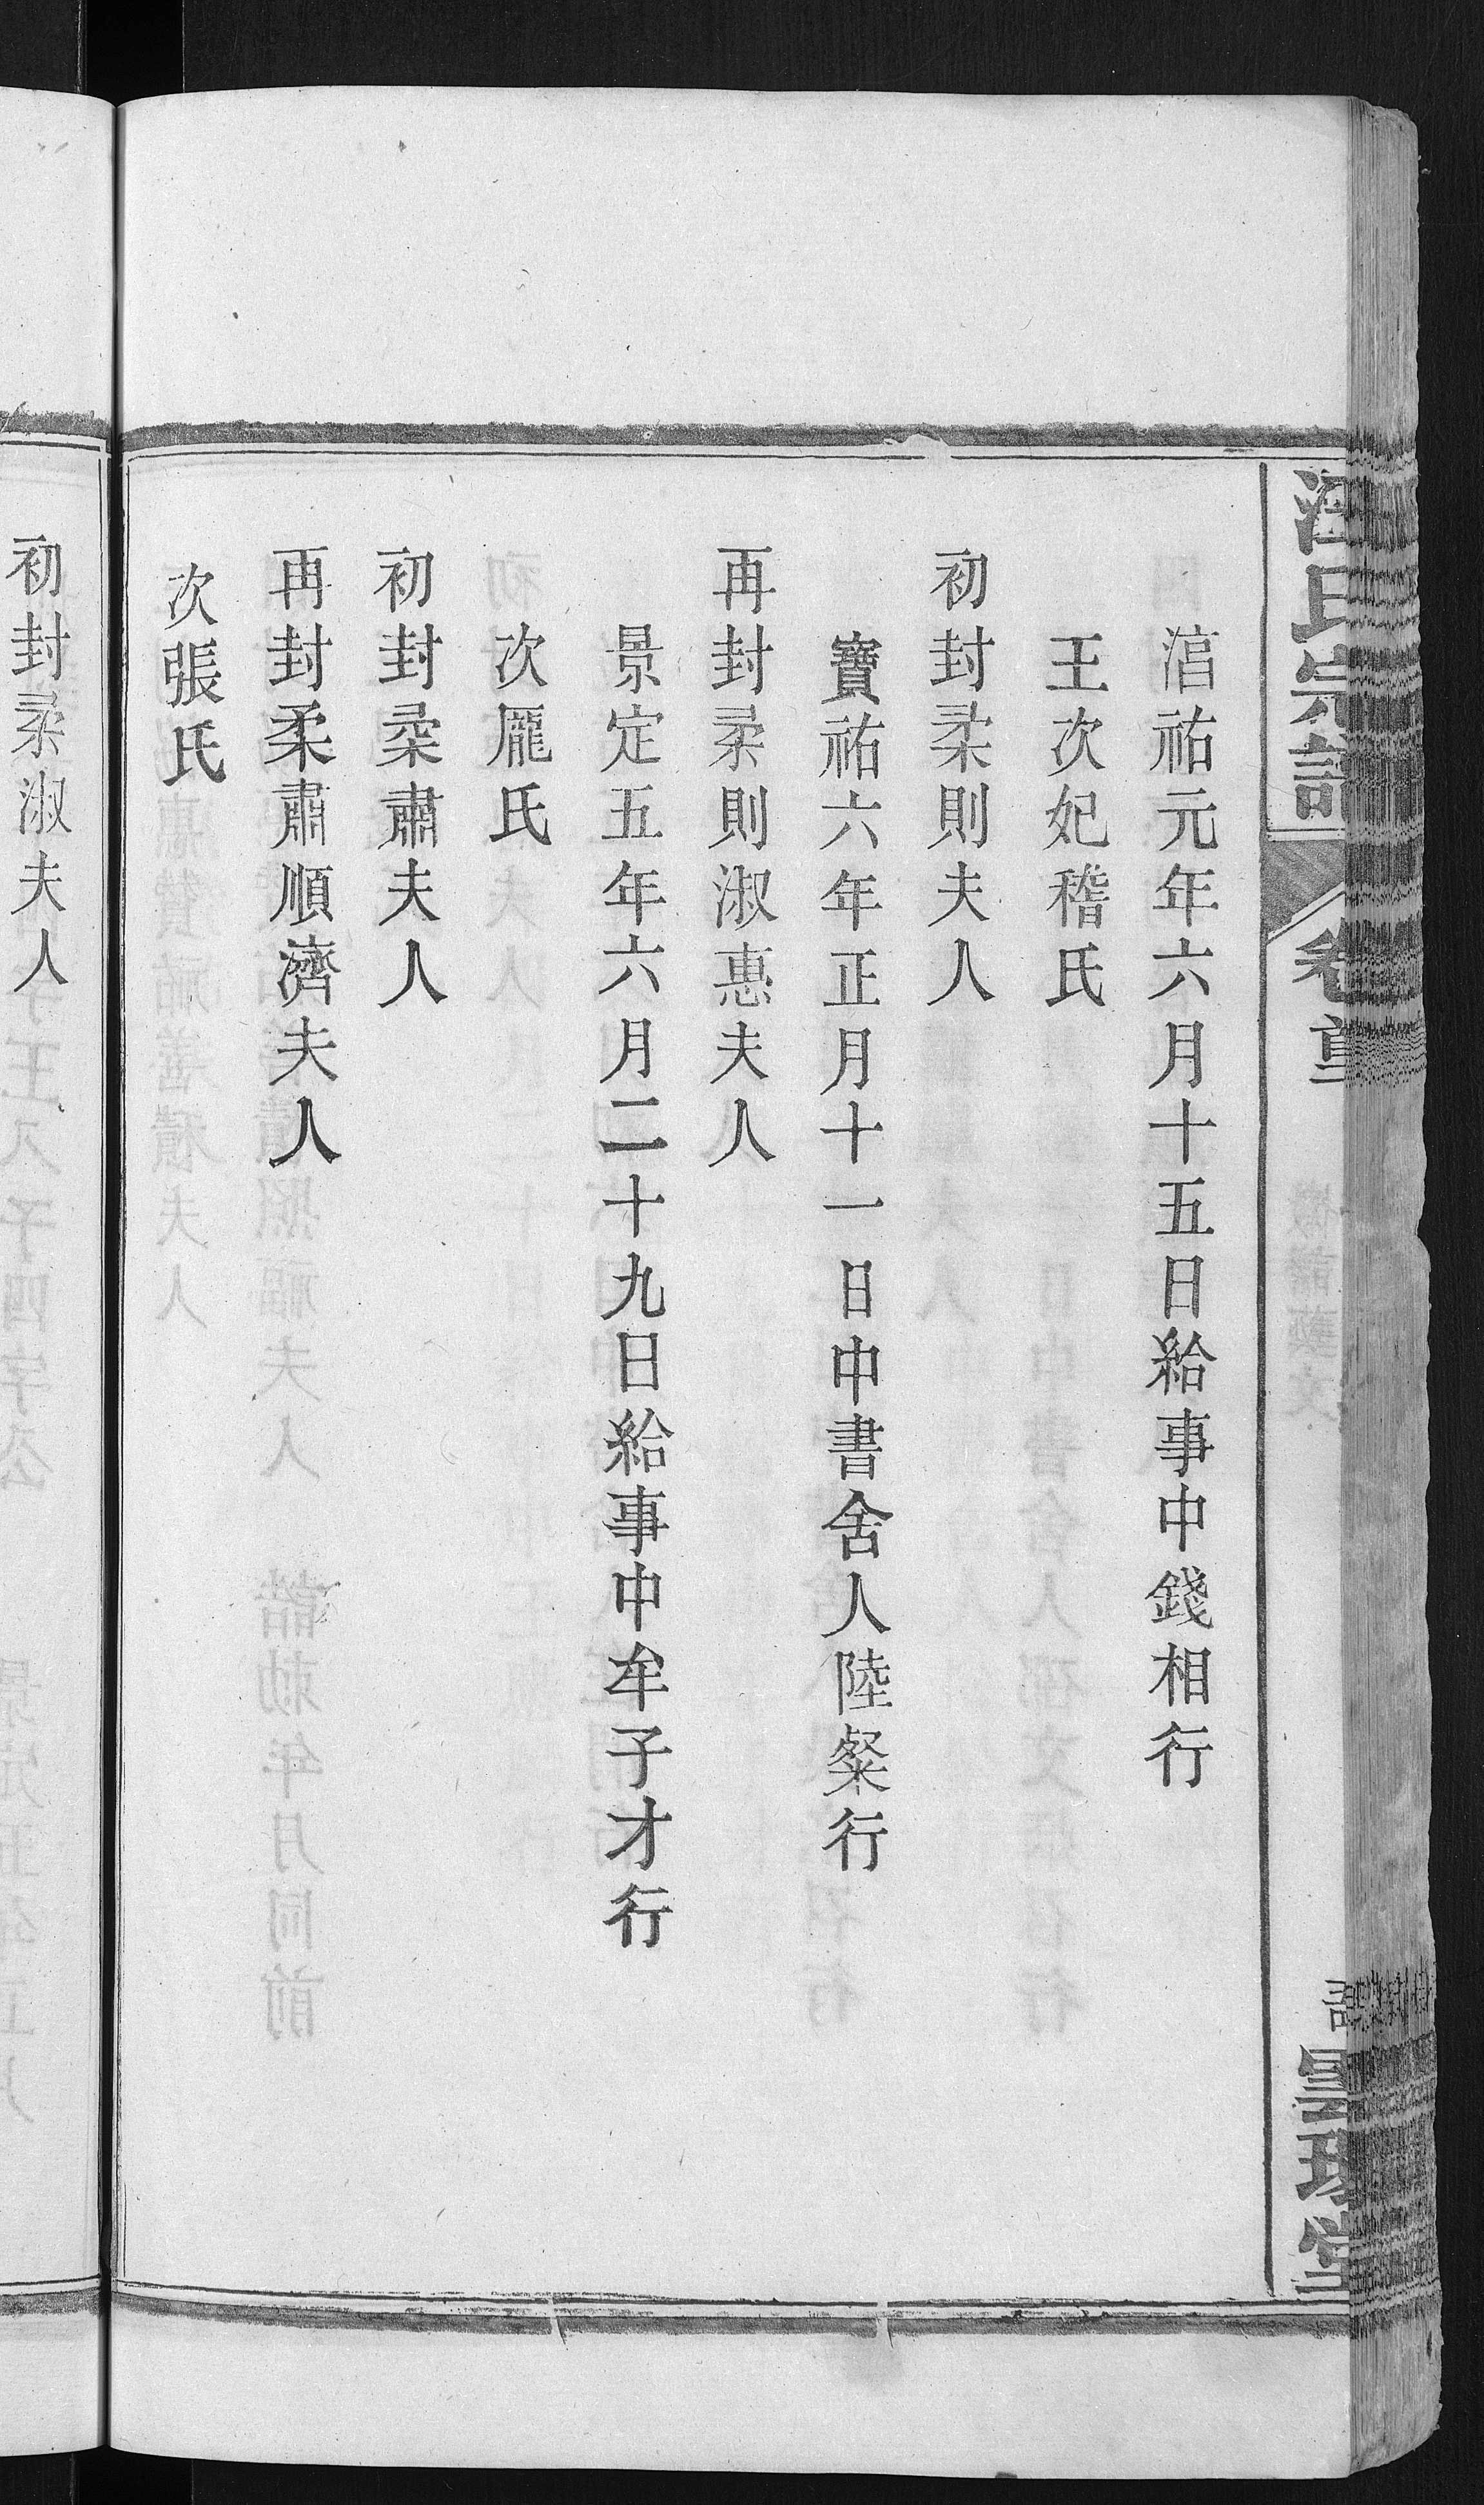 汪氏宗譜
卷首
淯祐元年六月十五日給事中錢相行
王次妃稽氏
初封柔則夫人
寶祐六年正月十一日中書舍人陸粲行
再封柔則淑惠夫人
景定五年六月二十九日給事中牟子才行
次龎氏
初封柔肅夫人
再封柔肅順濟夫人
次張氏
初封柔淑夫人